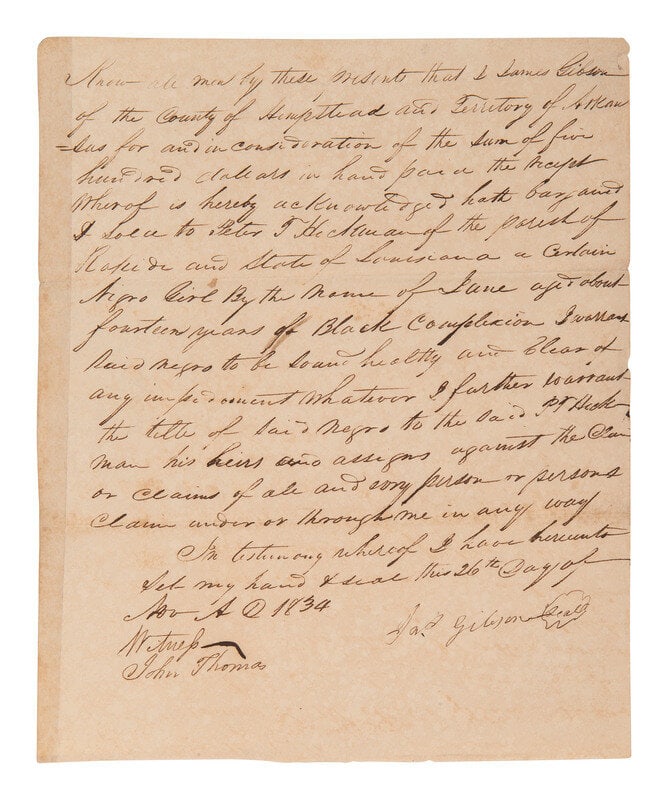 Know all men by these presents that I James Gibson
of the County of Hempstead and Territory of Arkan
=sas for and in consideration of the sum of five
hundred dollars in hand paid the receipt
Wherof is hereby acknowledged hath bargained
& sold to Peter T Hickman of the parish of
Rapide and State of Louisiana a Certain
Negro Girl By the Name of Jane aged about
fourteen years of Black Complexion I warrant
Said negro to be sound healthy and Clear of
any impediment Whatever I further warrant
the title of said Negro to the said P T Hick
man his heirs and assigns against the Claim
or Claims of all and every person or persons
Claim under or through me in any way
In testimony whereof I have hereunto
Set my hand & seal this 26th Day of
Nov A D 1834
Jas. Gibson Seal
Witness
John Thomas